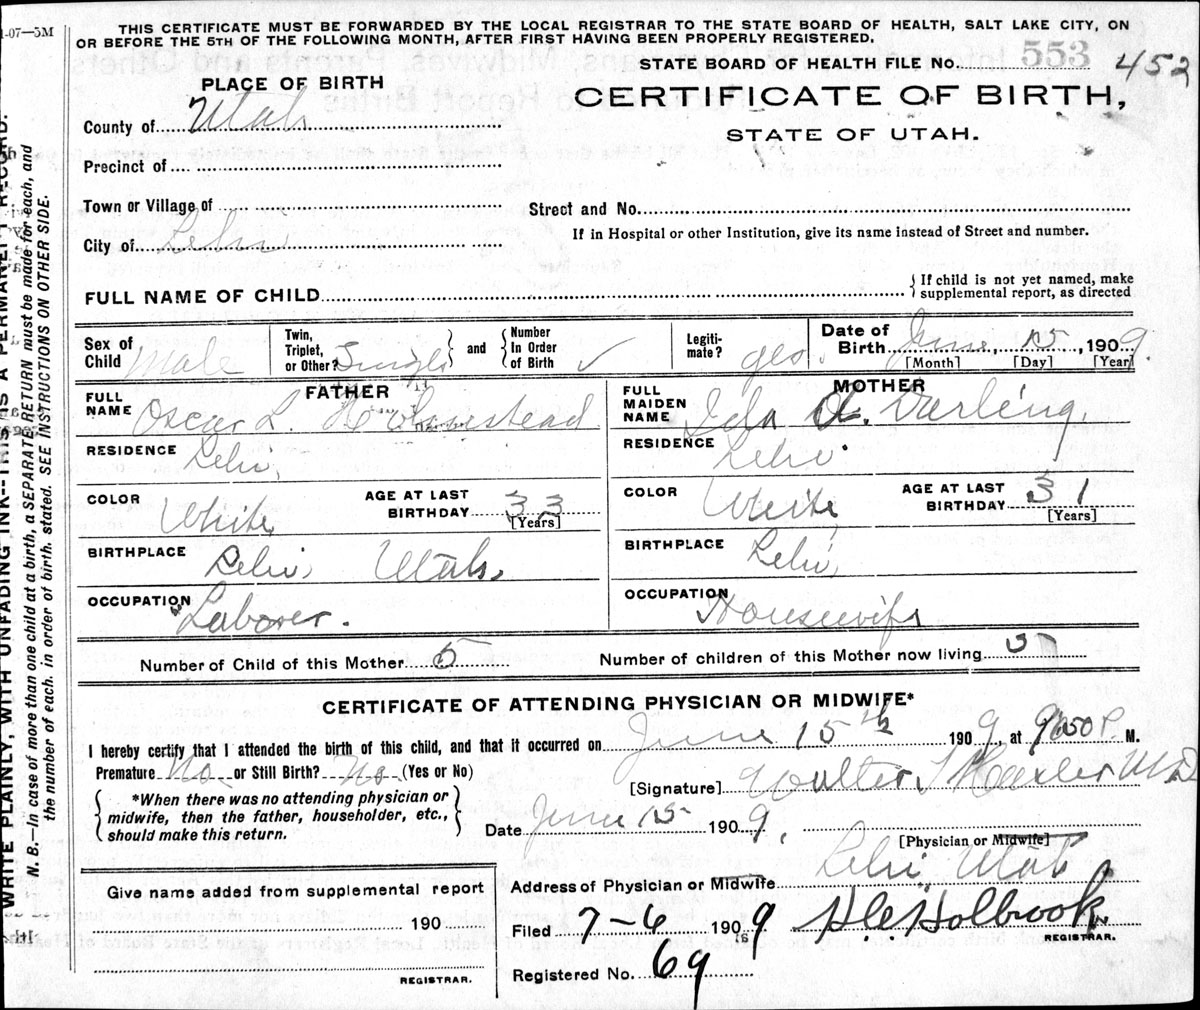 1-07—5M
THIS CERTIFICATE MUST BE FORWARDED BY THE LOCAL REGISTRAR TO THE STATE BOARD OF HEALTH, SALT LAKE CITY, ON
OR BEFORE THE 5TH OF THE FOLLOWING MONTH, AFTER FIRST HAVING BEEN PROPERLY REGISTERED.
STATE BOARD OF HEALTH FILE No. 553 452
PLACE OF BIRTH
CERTIFICATE OF BIRTH,
STATE OF UTAH.
County of Utah
Precinct of
Town or Village of
Street and No.
City of Lehi
If in Hospital or other Institution, give its name instead of Street and number.
FULL NAME OF CHILD
{ If child is not yet named, make
supplemental report, as directed
Sex of Child Male
Twin, Triplet, or Other? Single
and { Number In Order of Birth ✓
Legiti- mate? yes.
Date of Birth June, 15, 1909.
[Month] [Day] [Year]
FATHER
FULL NAME Oscar L.
RESIDENCE Lehi,
COLOR White,
AGE AT LAST BIRTHDAY 33
[Years]
BIRTHPLACE Lehi, Utah,
OCCUPATION Laborer.
MOTHER
FULL MAIDEN NAME Ida A. Darling.
RESIDENCE Lehi.
COLOR White,
AGE AT LAST BIRTHDAY 31
[Years]
BIRTHPLACE Lehi,
OCCUPATION Housewife
Number of Child of this Mother 5
Number of children of this Mother now living
CERTIFICATE OF ATTENDING PHYSICIAN OR MIDWIFE*
I hereby certify that I attended the birth of this child, and that it occurred on June 15th 1909, at P. M.
Premature No or Still Birth? No (Yes or No)
[Signature] Walter
{ *When there was no attending physician or
midwife, then the father, householder, etc.,
should make this return. }
Date June 15 1909,
[Physician or Midwife]
Address of Physician or Midwife Lehi Utah
Give name added from supplemental report
190
REGISTRAR.
Filed 7-6 1909 Holbrook
REGISTRAR.
Registered No. 69
WRITE PLAINLY, WITH UNFADING INK--THIS IS A PERMANENT RECORD.
N. B.—In case of more than one child at a birth, a SEPARATE RETURN must be made for each, and
the number of each, in order of birth, stated. SEE INSTRUCTIONS ON OTHER SIDE.